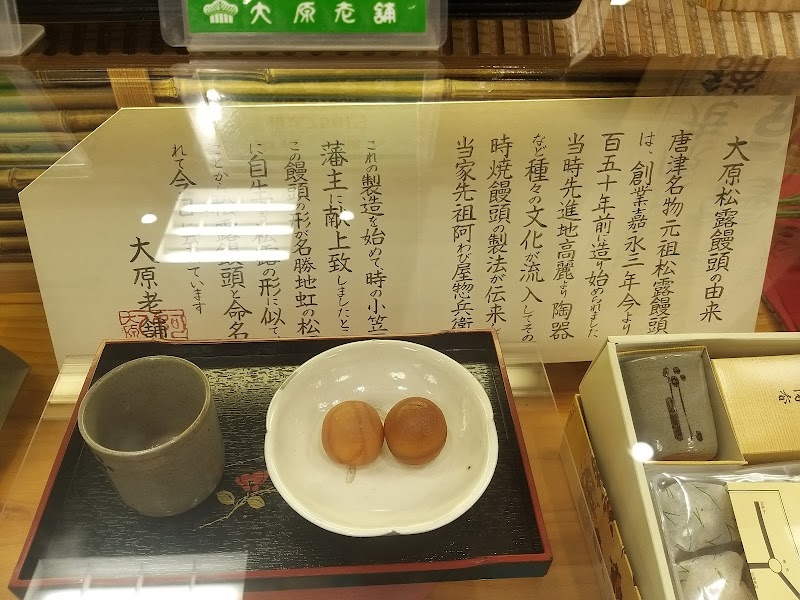 大原老舗
大原松露饅頭の由来
唐津名物元祖松露饅頭
は、創業嘉永三年今より
百五十年前に造り始められました
当時先進地高麗より陶器
など種々の文化が流入してその
時焼饅頭の製法が伝来
当家先祖阿わび屋惣兵衛
これの製造を始めて時の小笠
藩主に献上致しましたと
この饅頭の形が名勝地虹の松
に自生 の形に似て
ことから松露饅頭と命名
れて今日 ています
大原老舗